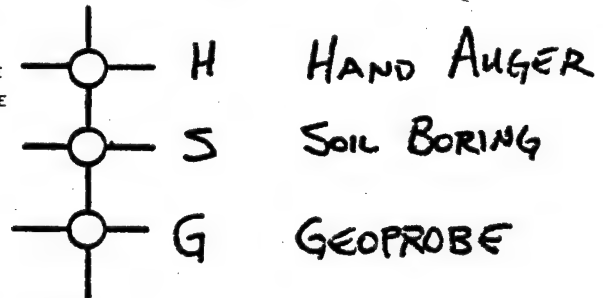 E
E
H HAND AUGER
S SOIL BORING
G GEOPROBE